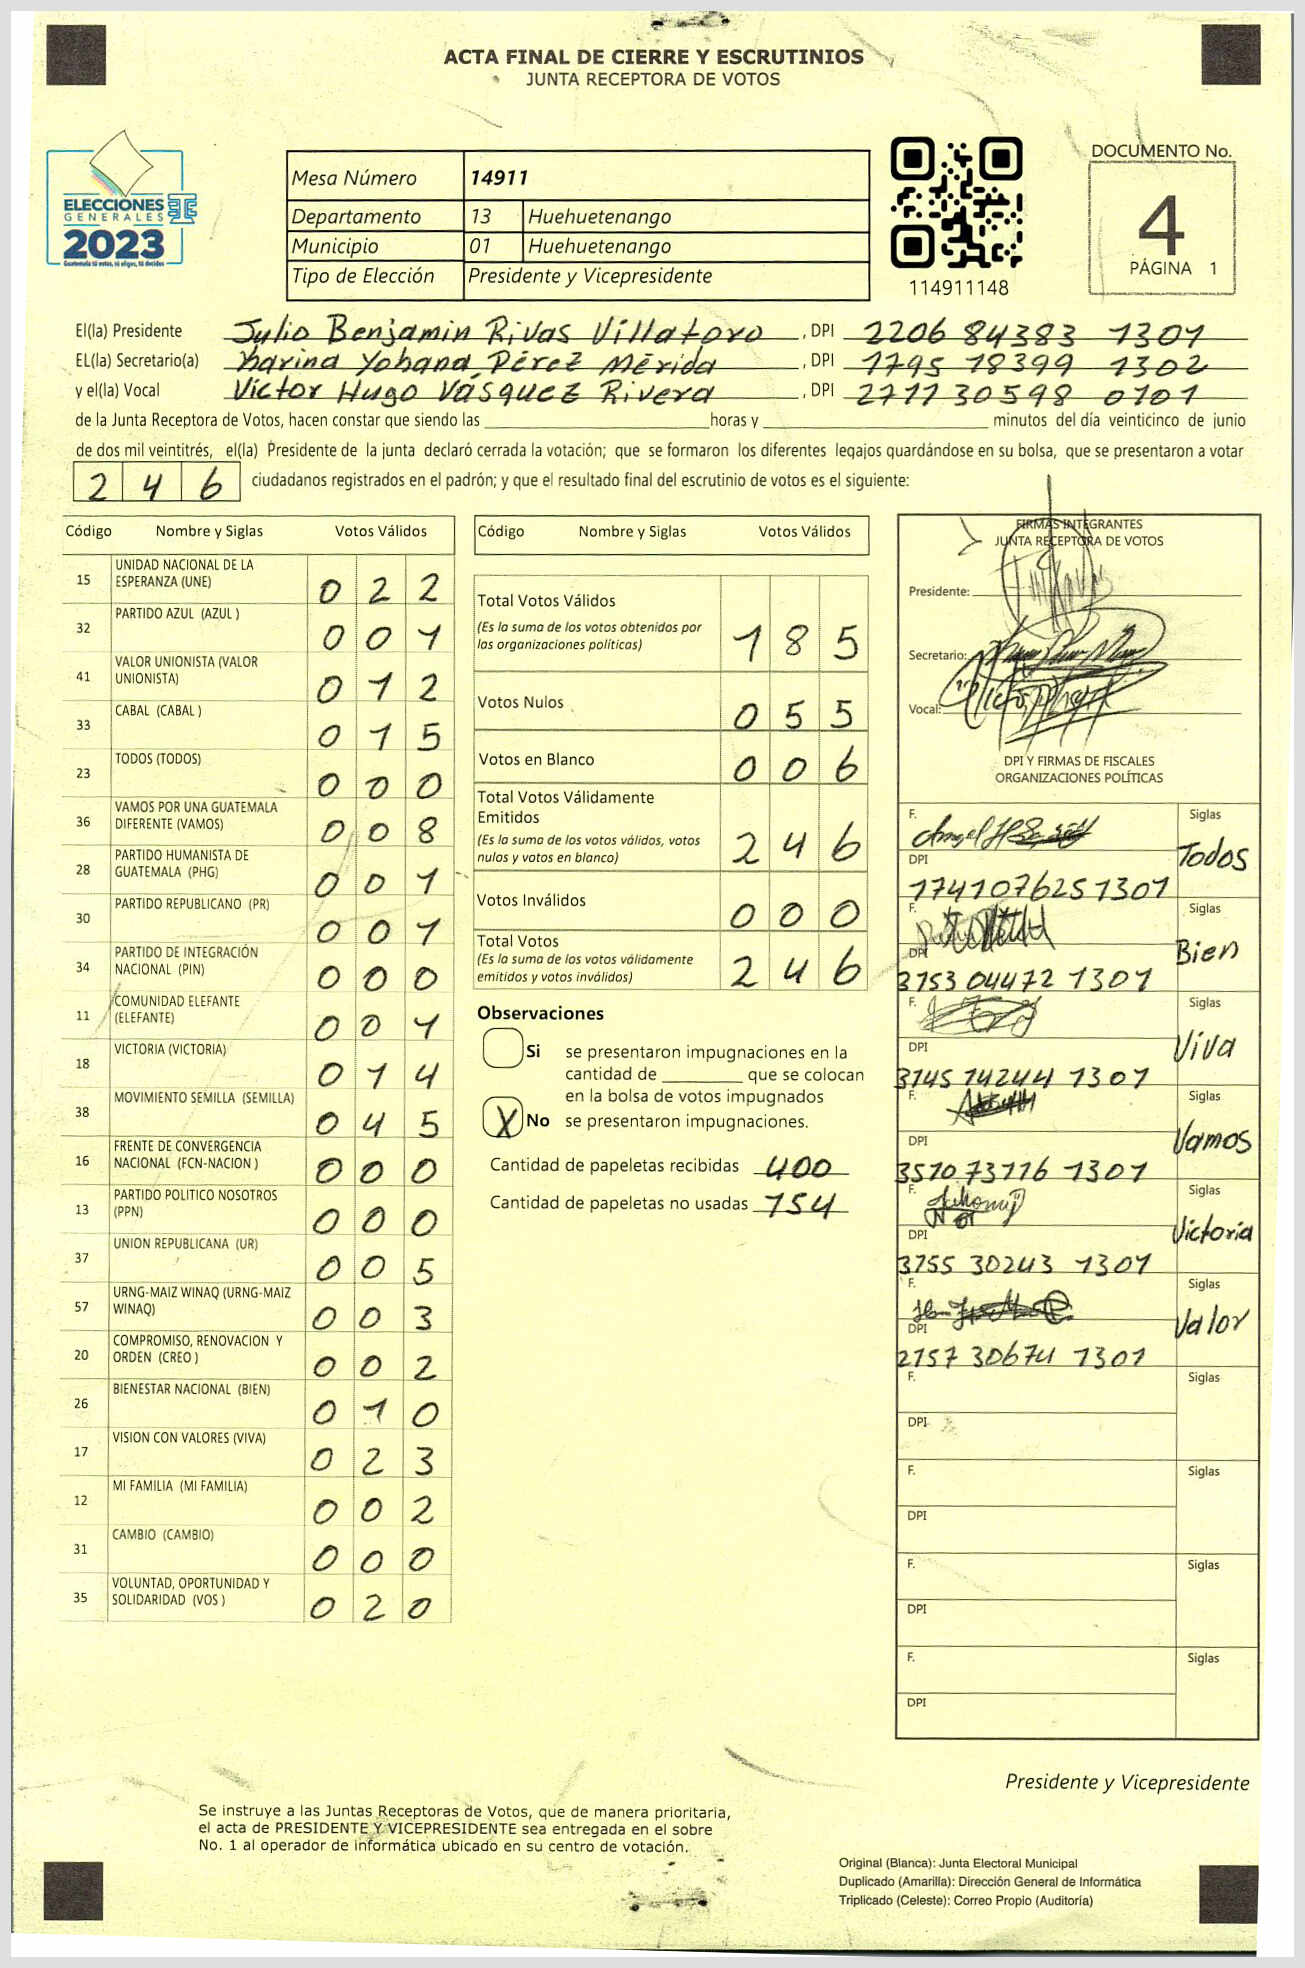 ACTA FINAL DE CIERRE Y ESCRUTINIOS
JUNTA RECEPTORA DE VOTOS
ELECCIONES
GENERALES
2023
Guatemala tú votas, tú eliges, tú decides
Mesa Número 14911
Departamento 13 Huehuetenango
Municipio 01 Huehuetenango
Tipo de Elección Presidente y Vicepresidente
114911148
DOCUMENTO No.
4
PÁGINA 1
El(la) Presidente Julio Benjamin Rivas Villatoro, DPI 2206 84383 1301
EL(la) Secretario(a) Karina Yohana Pérez Mérida, DPI 1795 18399 1302
y el(la) Vocal Víctor Hugo Vásquez Rivera, DPI 2711 30598 0101
de la Junta Receptora de Votos, hacen constar que siendo las horas y minutos del día veinticinco de junio
de dos mil veintitrés, el(la) Presidente de la junta declaró cerrada la votación; que se formaron los diferentes legajos guardándose en su bolsa, que se presentaron a votar
246 ciudadanos registrados en el padrón; y que el resultado final del escrutinio de votos es el siguiente:
Código Nombre y Siglas Votos Válidos
15 UNIDAD NACIONAL DE LA
ESPERANZA (UNE) 022
32 PARTIDO AZUL (AZUL ) 001
41 VALOR UNIONISTA (VALOR
UNIONISTA) 012
33 CABAL (CABAL ) 015
23 TODOS (TODOS) 000
36 VAMOS POR UNA GUATEMALA
DIFERENTE (VAMOS) 008
28 PARTIDO HUMANISTA DE
GUATEMALA (PHG) 001
30 PARTIDO REPUBLICANO (PR) 001
34 PARTIDO DE INTEGRACIÓN
NACIONAL (PIN) 000
11 COMUNIDAD ELEFANTE
(ELEFANTE) 001
18 VICTORIA (VICTORIA) 014
38 MOVIMIENTO SEMILLA (SEMILLA) 045
16 FRENTE DE CONVERGENCIA
NACIONAL (FCN-NACION ) 000
13 PARTIDO POLITICO NOSOTROS
(PPN) 000
37 UNION REPUBLICANA (UR) 005
57 URNG-MAIZ WINAQ (URNG-MAIZ
WINAQ) 003
20 COMPROMISO, RENOVACION Y
ORDEN (CREO ) 002
26 BIENESTAR NACIONAL (BIEN) 010
17 VISION CON VALORES (VIVA) 023
12 MI FAMILIA (MI FAMILIA) 002
31 CAMBIO (CAMBIO) 000
35 VOLUNTAD, OPORTUNIDAD Y
SOLIDARIDAD (VOS ) 020
Código Nombre y Siglas Votos Válidos
Total Votos Válidos
(Es la suma de los votos obtenidos por
las organizaciones políticas) 185
Votos Nulos 055
Votos en Blanco 006
Total Votos Válidamente
Emitidos
(Es la suma de los votos válidos, votos
nulos y votos en blanco) 246
Votos Inválidos 000
Total Votos
(Es la suma de los votos válidamente
emitidos y votos inválidos) 246
Observaciones
Si se presentaron impugnaciones en la
cantidad de que se colocan
en la bolsa de votos impugnados
X No se presentaron impugnaciones.
Cantidad de papeletas recibidas 400
Cantidad de papeletas no usadas 154
FIRMAS INTEGRANTES
JUNTA RECEPTORA DE VOTOS
Presidente:
Secretario:
Vocal:
DPI Y FIRMAS DE FISCALES
ORGANIZACIONES POLÍTICAS
F. Siglas
Todos
DPI
1741076251301
F. Siglas
Bien
DPI
3753 04472 1301
F. Siglas
Viva
DPI
3745 14244 1301
F. Siglas
Vamos
DPI
3510 73116 1301
F. Siglas
Victoria
DPI
3755 30243 1301
F. Siglas
Valor
DPI
2157 30674 1301
F. Siglas
DPI
F. Siglas
DPI
F. Siglas
DPI
F. Siglas
DPI
Presidente y Vicepresidente
Se instruye a las Juntas Receptoras de Votos, que de manera prioritaria,
el acta de PRESIDENTE Y VICEPRESIDENTE sea entregada en el sobre
No. 1 al operador de informática ubicado en su centro de votación.
Original (Blanca): Junta Electoral Municipal
Duplicado (Amarilla): Dirección General de Informática
Triplicado (Celeste): Correo Propio (Auditoría)